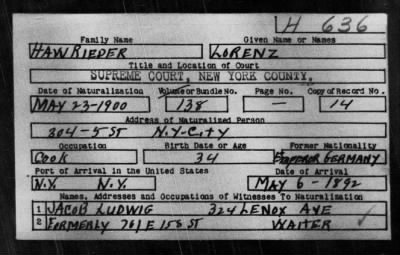 H 636
Family Name Given Name or Names
HAWRIEDER LORENZ
Title and Location of Court
SUPREME COURT, NEW YORK COUNTY.
Date of Naturalization Volume or Bundle No. Page No. Copy of Record No.
MAY 23-1900 138 — 14
Address of Naturalized Person
304-5 ST N.Y-CITY
Occupation Birth Date or Age Former Nationality
COOK 34 EMPEROR GERMANY
Port of Arrival in the United States Date of Arrival
N.Y. N.Y. MAY 6-1892
Names, Addresses and Occupations of Witnesses To Naturalization
1 JACOB LUDWIG 324 LENOX AVE
2 FORMERLY 761 E 158 ST WAITER